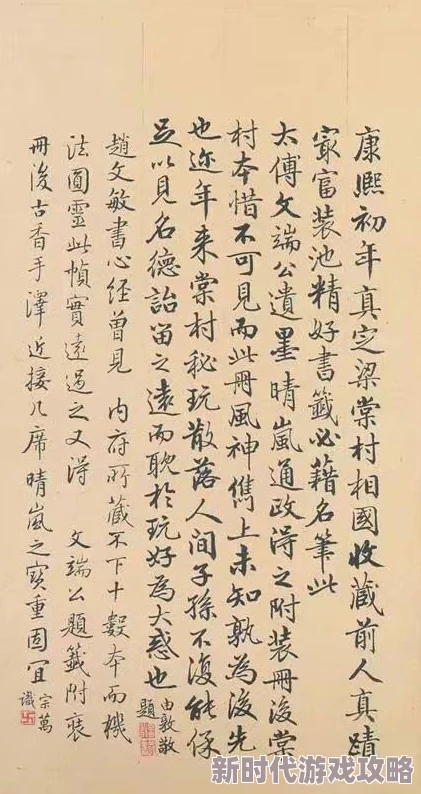 康熙初年真定梁棠村相國收藏前人真蹟
宼富装池精好書籤必藉名筆此
太傅文端公遺墨晴嵐通政淂之附装冊後棠
村本惜不可見而此冊風神儁上未知孰為後先
也近年来棠村秘玩散落人間子孫不復能保
足以見名德詒留之遠而耽於玩好為大惑也
由敦敬
題
趙文敏書心經曽見 内府所藏不下十數本而機
法圓靈此幀實遠過之又淂 文端公題籤附裝
冊後古香手澤近接几席晴嵐之寳重固冝
宗萬
識
新时代游戏攻略